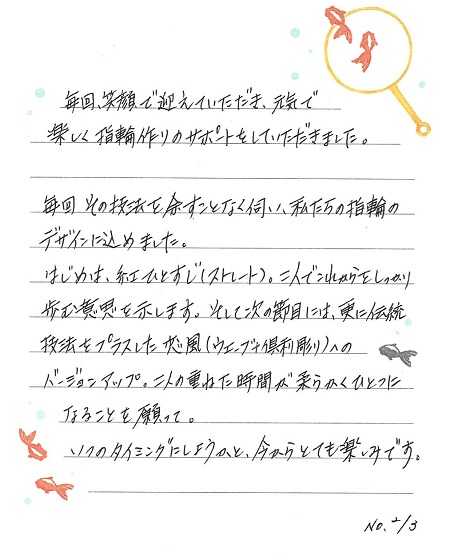 毎回、笑顔で迎えていただき、元気で
楽しく指輪作りのサポートをしていただきました。
毎回その技法を余すことなく伺い、私たちの指輪の
デザインに込めました。
はじめは、紅ひとすじ(ストレート)。二人でこれからをしっかり
歩む意思を示します。そして次の節目には、更に伝統
技法をプラスした 風(ウェーブ+倶利彫り)への
バージョンアップ。二人の重ねた時間が柔らかくひとつに
なることを願って。
いつのタイミングにしようかと、今からとても楽しみです。
No. 2/3